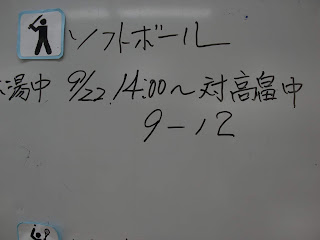 ソフトボール
湯中 9/22 14:00〜対高畠中
9-12